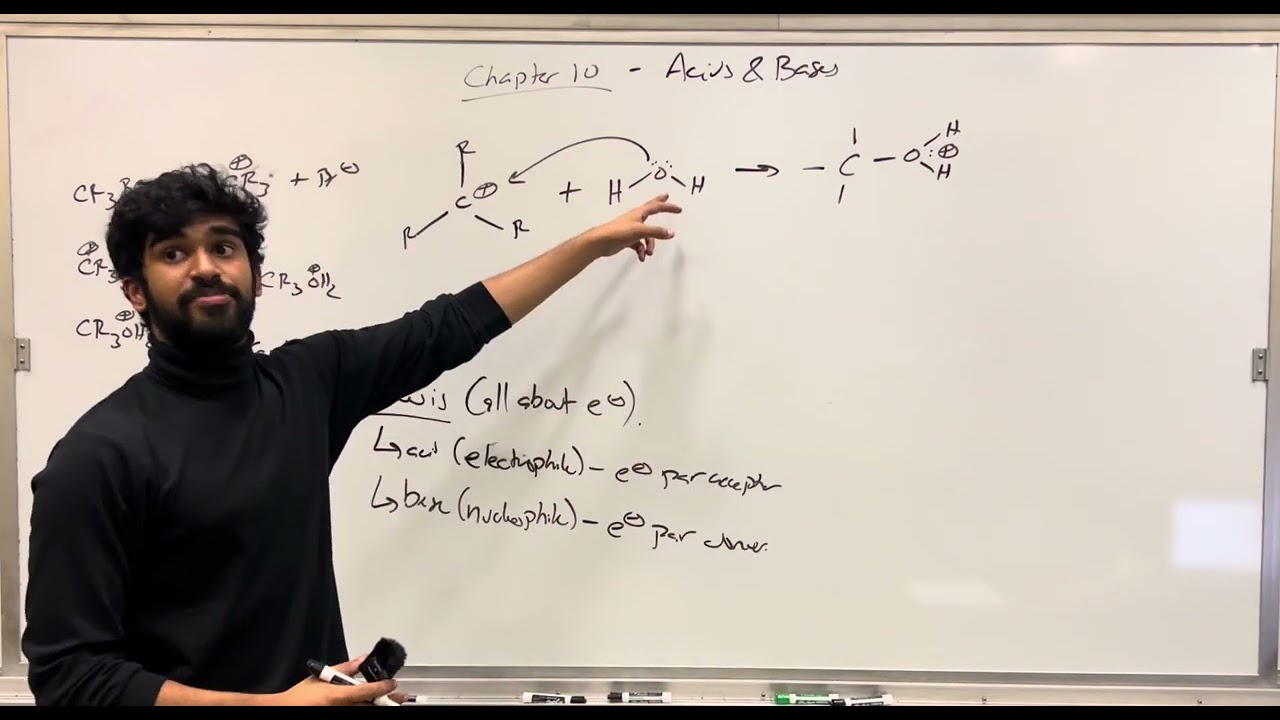 Chapter 10 - Acids & Bases
CR3 CR3 ⊕ + Br ⊖
R
C ⊕
R R
+
H O H
→
- C - O H ⊕ H
⊕ CR3
CR3OH2 ⊕
CR3OH ⊕
(all about e⊖).
↳ acid (electrophile) - e⊖ pair acceptor
↳ base (nucleophile) - e⊖ pair donor.